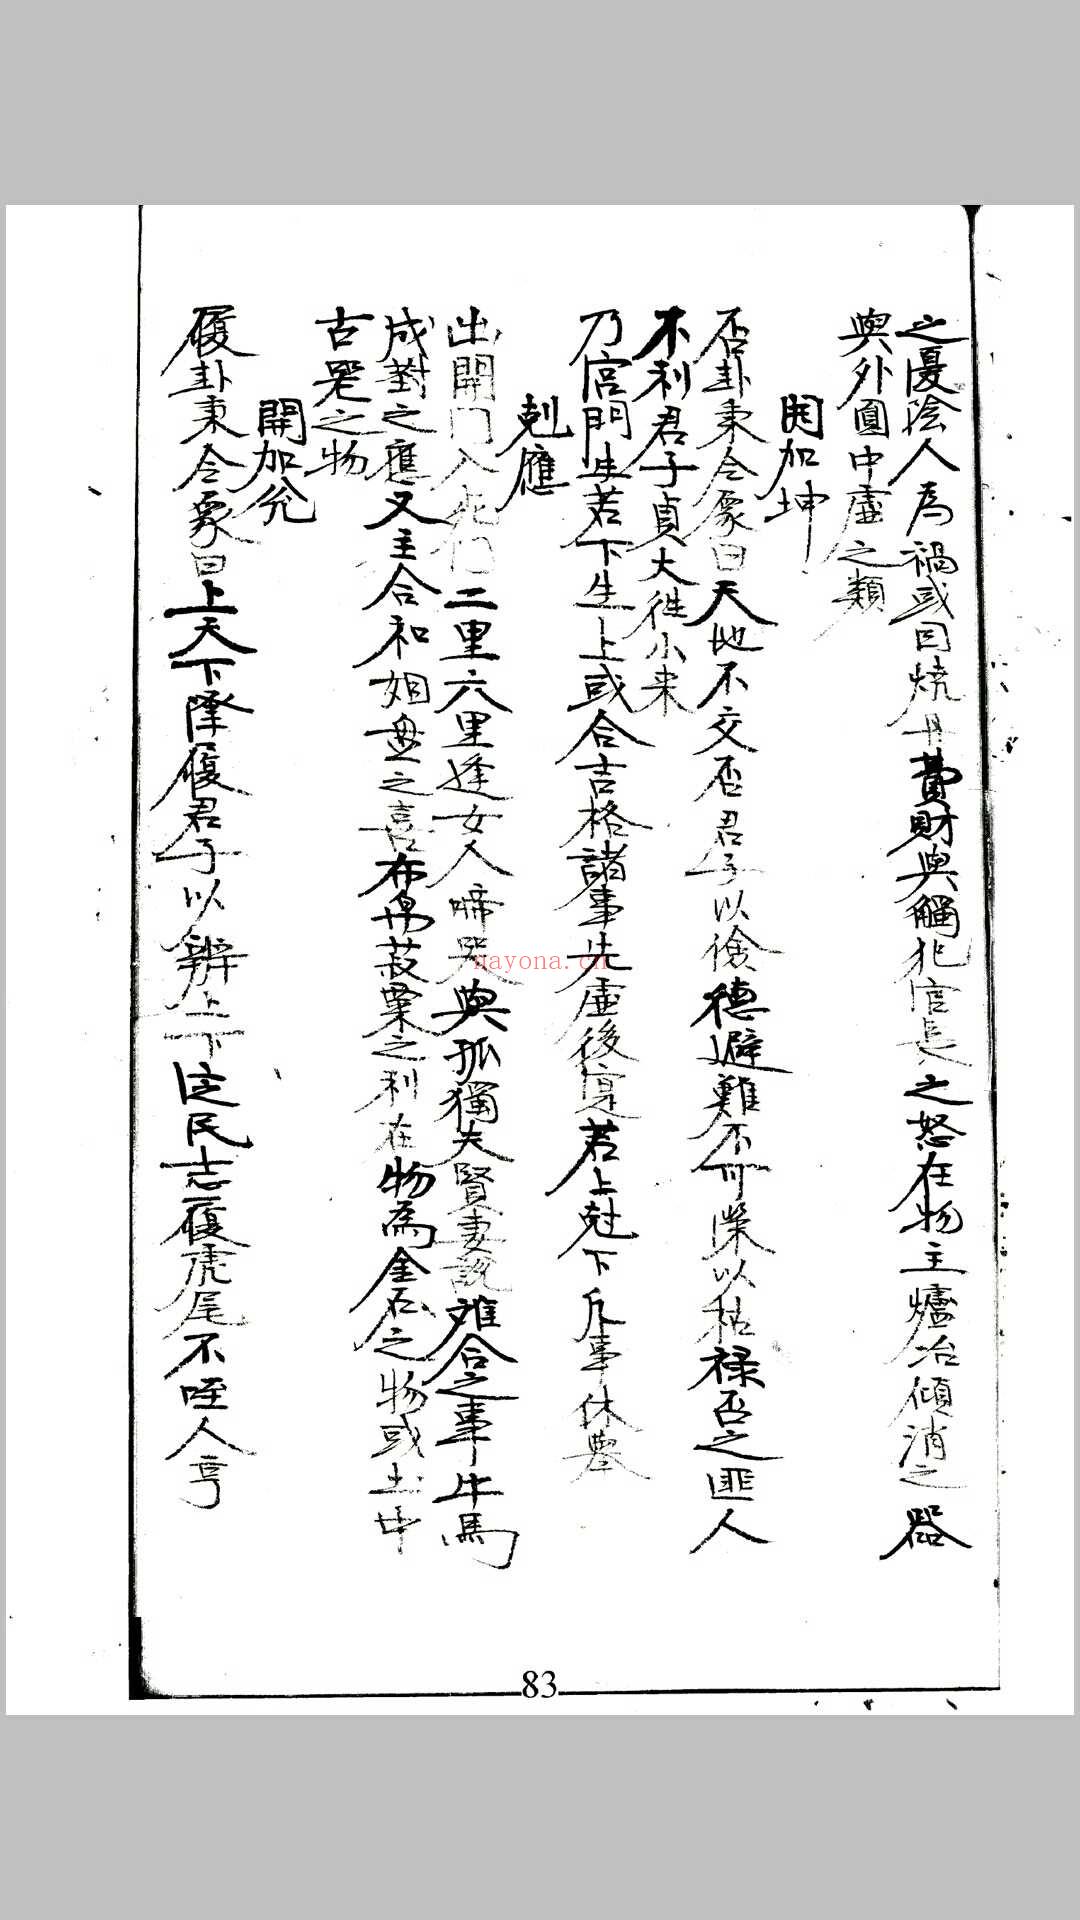 之憂陰人為禍或因燒丹費財與觸犯官長之怒在物主爐冶傾消之器
與外圓中虛之類
開加坤
否卦東令彖曰天地不交否君子以儉德避難不可榮以祿否之匪人
不利君子貞大往小来
乃宮門生若下生上或合吉格諸事先虛後寔若上尅下斥事休舉
尅應
出開門入死門二里六里逢女人啼哭與孤獨夫賢妻說難合之事牛馬
成對之應又主合和姻之喜布帛菽粟之利在物為金石之物或土中
古器之物
開加兌
履卦東令彖曰上天下澤履君子以辨上下定民志履虎尾不咥人亨
83
nayona.cn